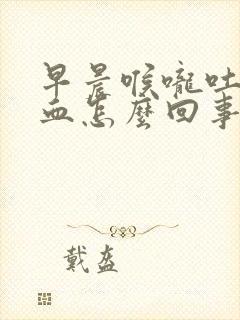 早晨喉嚨吐
血怎麼回事
戴盔